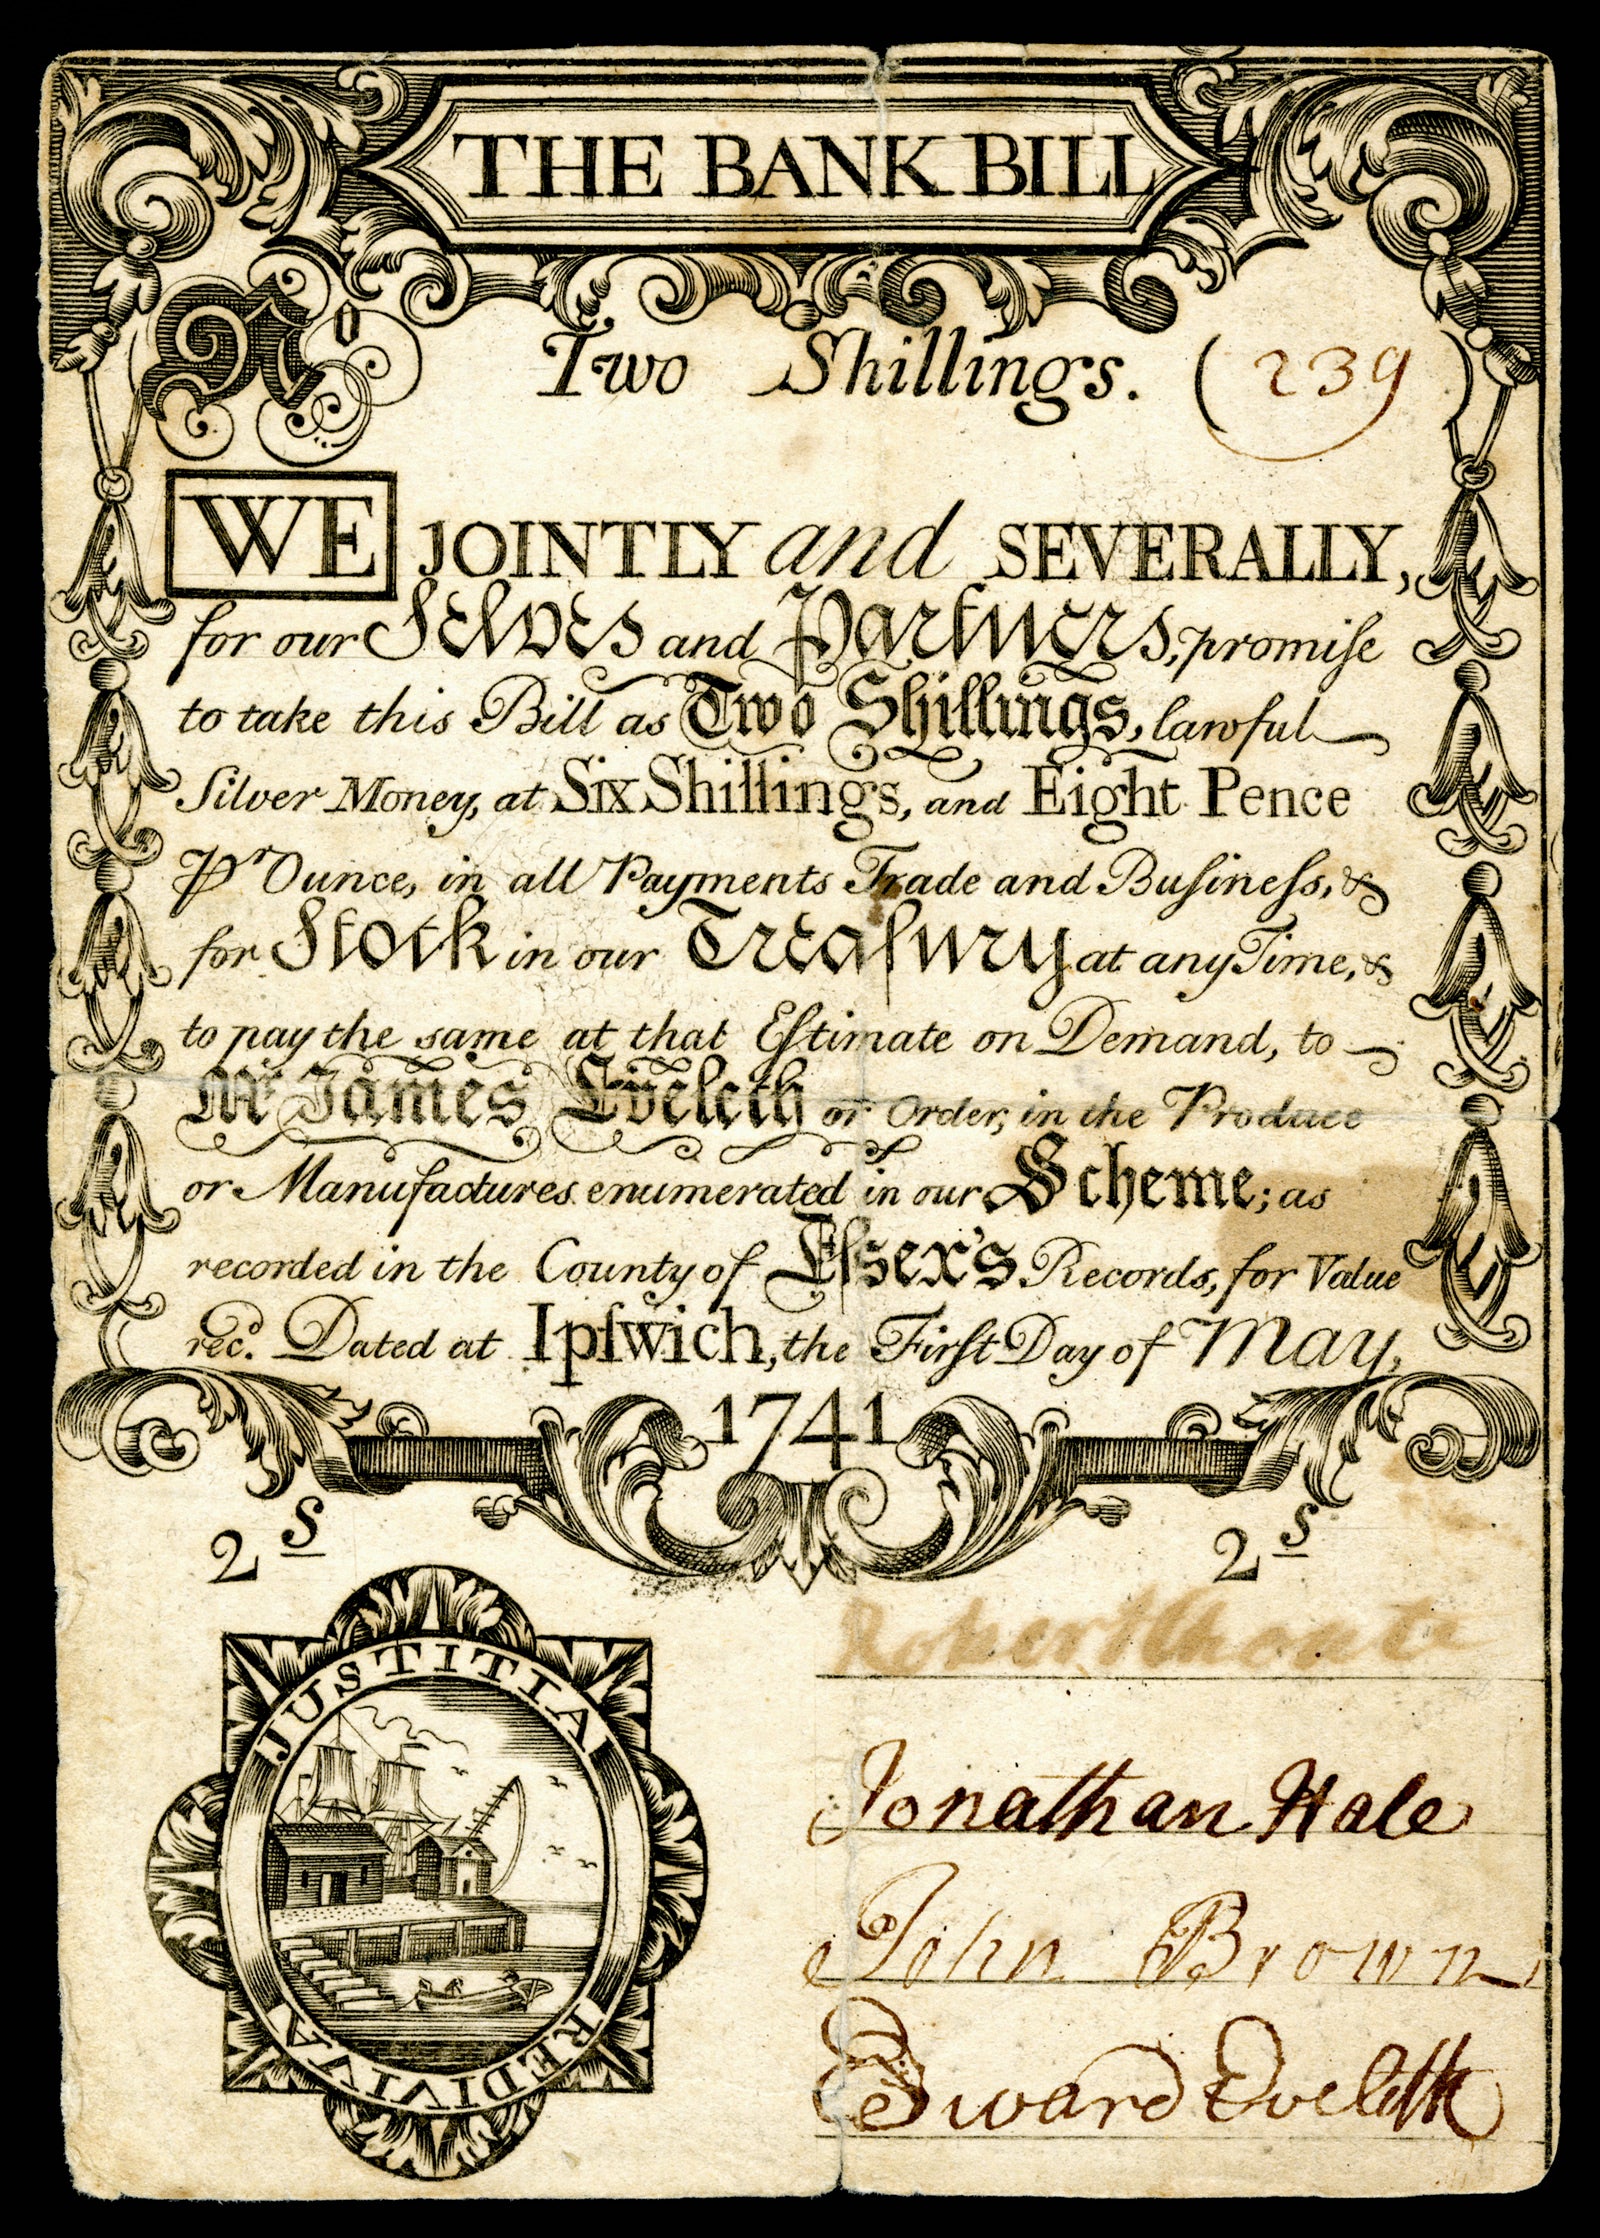 THE BANK BILL
No Two Shillings. (239)
WE JOINTLY and SEVERALLY,
for our Selves and Partners, promiſe
to take this Bill as Two Shillings, lawful
Silver Money, at Six Shillings, and Eight Pence
Pr Ounce, in all Payments Trade and Buſineſs, &
for Stock in our Treaſury at any Time, &
to pay the same at that Eſtimate on Demand, to
Mr James Eveleth or Order, in the Produce
or Manufactures enumerated in our Scheme; as
recorded in the County of Eſsex's Records, for Value
recd. Dated at Ipſwich, the Firſt Day of May,
1741
2s 2s
JUSTITIA REDIVIVA
Robert Choate
Jonathan Hale
John Brown
Edward Eveleth